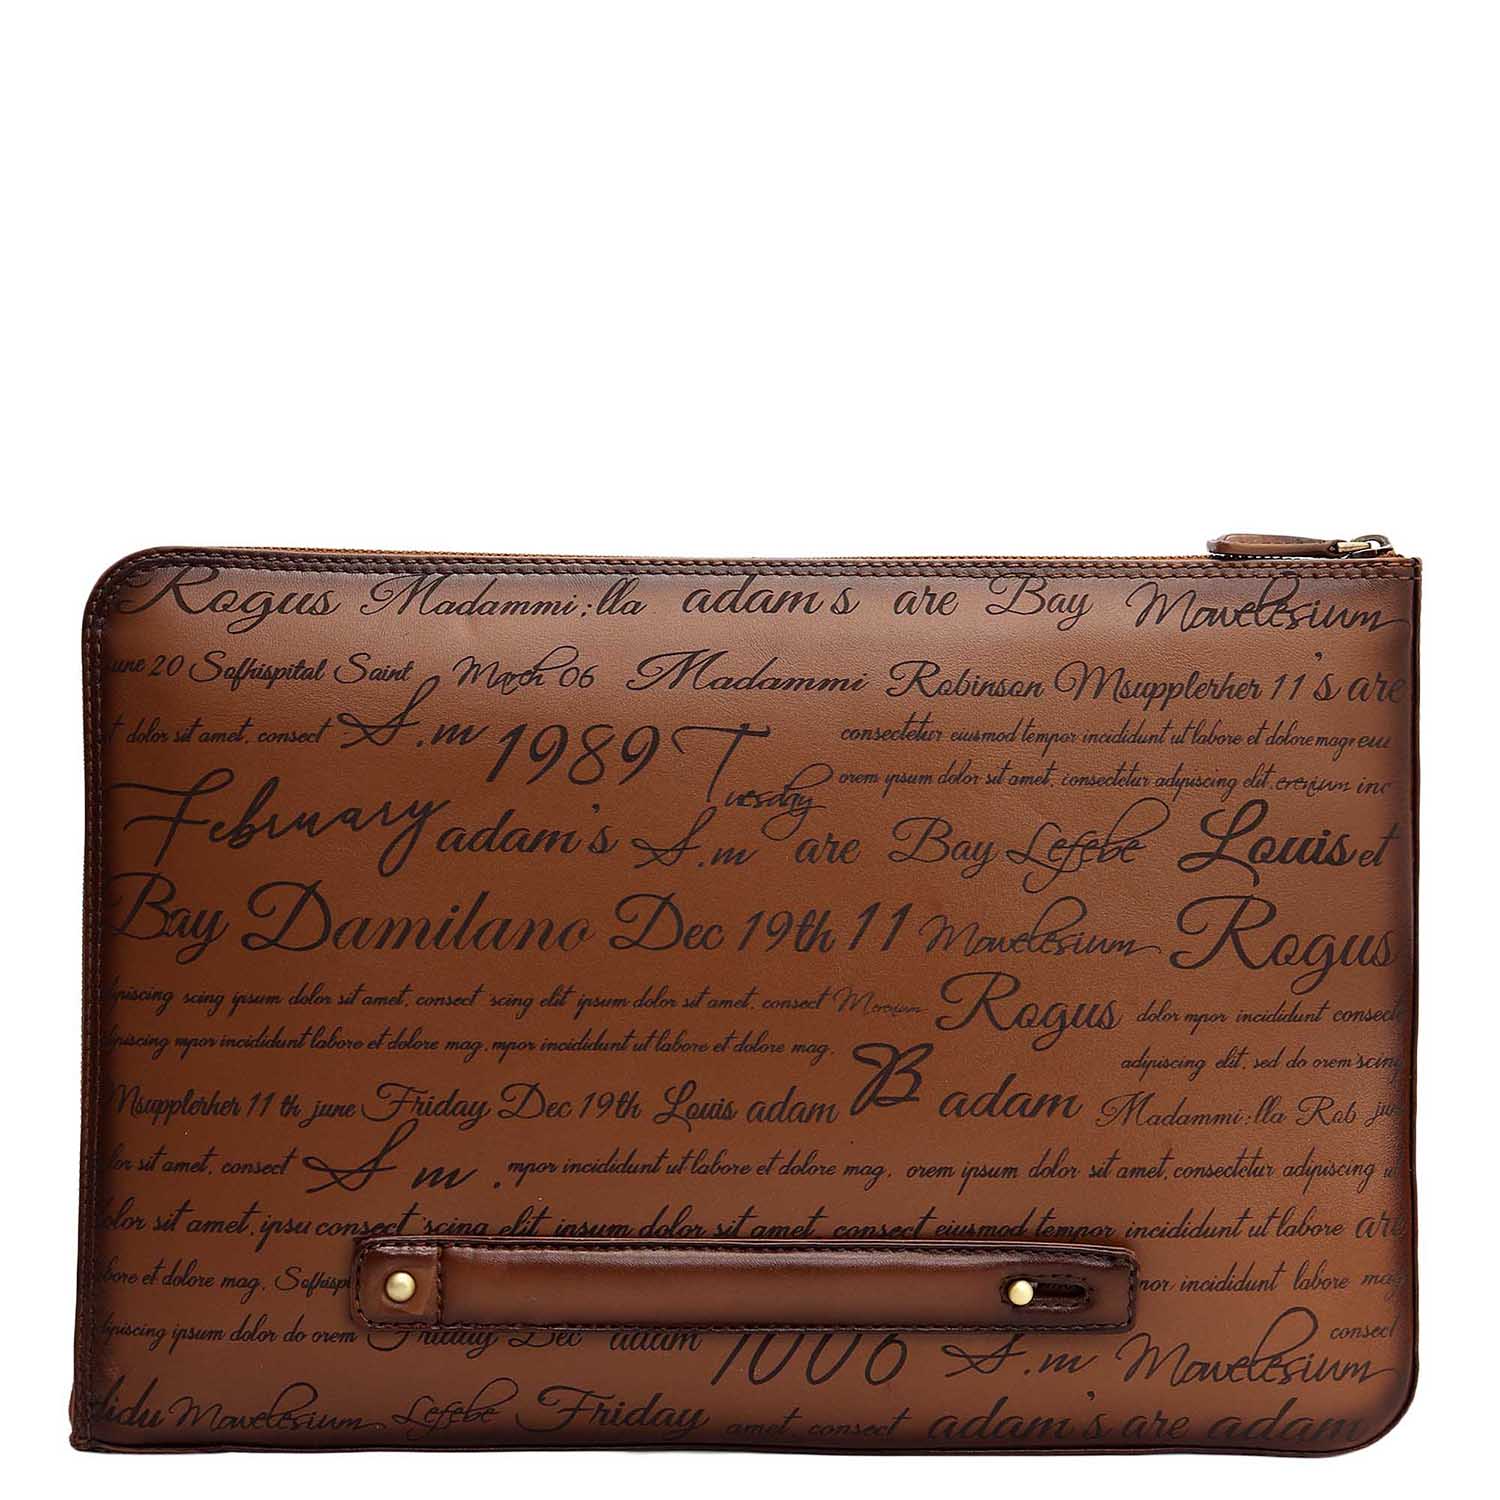 Rogus Madammi;lla adam's are Bay Mowelesium
une 20 Safhispital Saint March 06 Madammi Robinson Msupplerher 11's are
dolor sit amet, consect S.m 1989 Tuesday consectetur eiusmod tempor incididunt ut labore et dolore mag
orem ipsum dolor sit amet, consectetur adipiscing elit.
February adam's S.m are Bay Lefebe Louis et
Bay Damilano Dec 19th 11 Mowelesium Rogus
scing ipsum dolor sit amet, consect scing elit ipsum dolor sit amet, consect Rogus dolor mpor incididunt
mpor incididunt labore et dolore mag, mpor incididunt ut labore et dolore mag. adipiscing elit, sed do orem
Msupplerher 11 th june Friday Dec 19th Louis adam B adam Madammi:lla Rob
sit amet, consect S m . mpor incididunt ut labore et dolore mag, orem ipsum dolor sit amet, consectetur adipiscing
sit amet, ipsu consect scing elit ipsum dolor sit amet consect eiusmod tempor incididunt ut labore are
et dolore mag, incididunt labore mag
ipsum dolor do orem Friday Dec adam 1006 S.m Mowelesium consect
didu Mowelesium Lefebe Friday amet consect adam's are adam